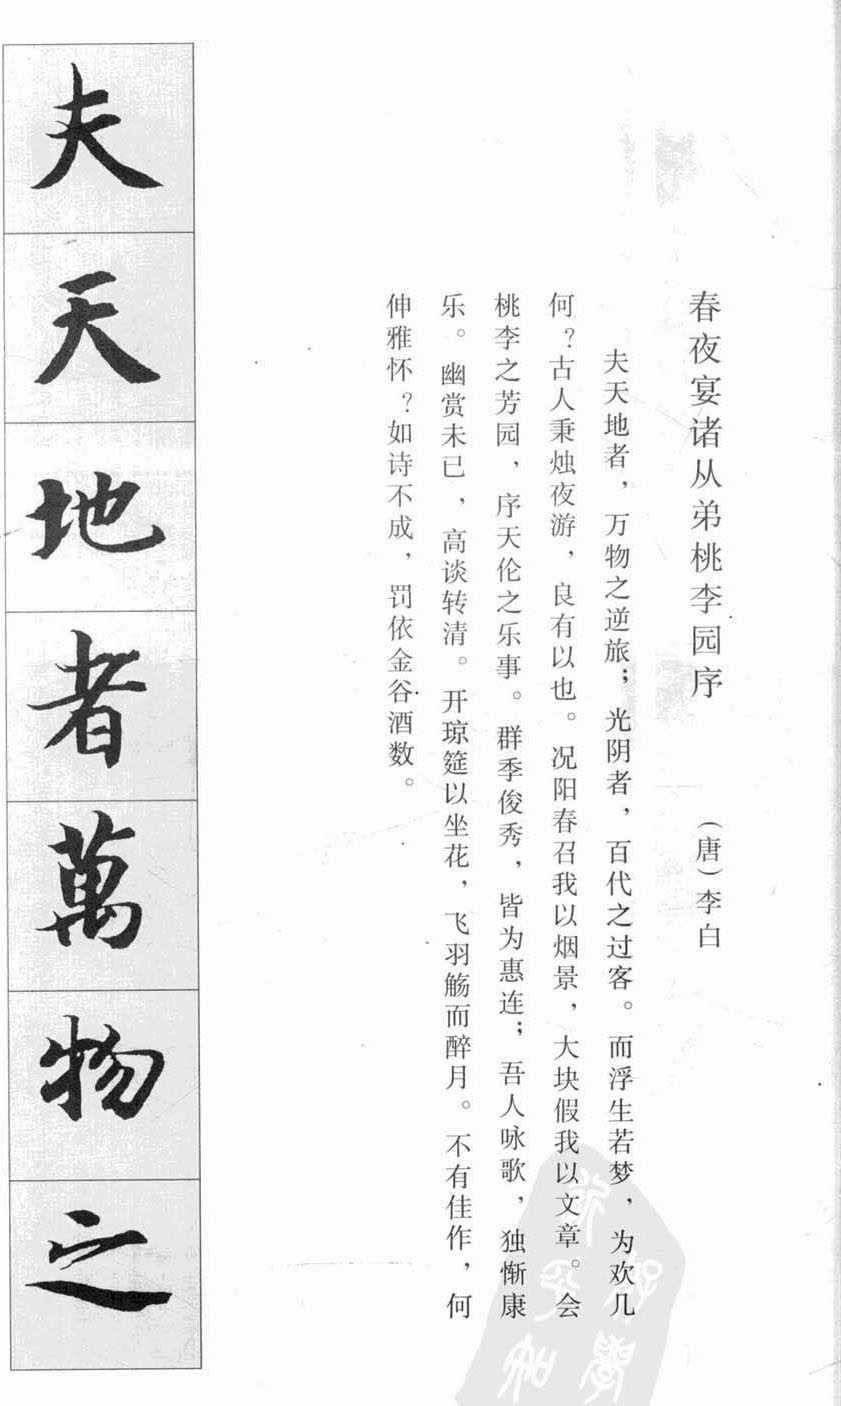 春夜宴诸从弟桃李园序 (唐)李白
夫天地者，万物之逆旅；光阴者，百代之过客。而浮生若梦，为欢几
何？古人秉烛夜游，良有以也。况阳春召我以烟景，大块假我以文章。会
桃李之芳园，序天伦之乐事。群季俊秀，皆为惠连；吾人咏歌，独惭康
乐。幽赏未已，高谈转清。开琼筵以坐花，飞羽觞而醉月。不有佳作，何
伸雅怀？如诗不成，罚依金谷酒数。
夫天地者萬物之